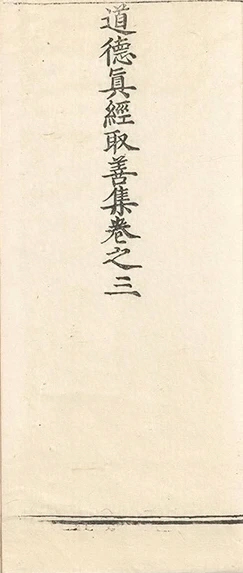 道德眞經取善集卷之三